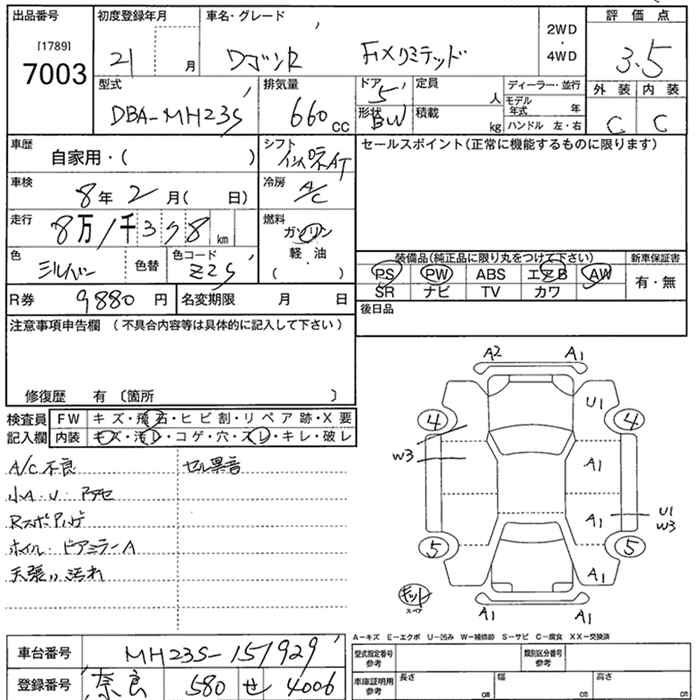 出品番号 初度登録年月 車名・グレード 評価点
[1789] 7003 21 月 ワゴンR FXリミテッド 2WD・4WD 3.5
型式 排気量 ドア 5 定員 人 ディーラー・並行 外装 内装
DBA-MH23S 660 CC 形状 BW 積載 kg モデル年式 年 ハンドル 左・右 C C
車歴 自家用・( ) シフト インパネAT セールスポイント(正常に機能するものに限ります)
車検 8年 2月( 日) 冷房 A/C
走行 8万1千378 km 燃料 ガソリン
軽・油
( ・ )
色 シルバー 色替 色コード Z2S 装備品(純正品に限り丸をつけて下さい) 新車保証書
PS PW ABS エアB AW 有・無
SR ナビ TV カワ
R券 9880 円 名変期限 月 日 後日品
注意事項申告欄 (不具合内容等は具体的に記入して下さい)
修復歴 有 〔箇所 〕
検査員 FW キズ・飛石・ヒビ割・リペア跡・X要
記入欄 内装 キズ・汚レ・コゲ・穴・スレ・キレ・破レ
A/C不良 セル異音
小A・U・アセ
RスポハゲF
ホイル・ドアミラーA
天張り汚れ
A2 A1
U1
4 4
W3 A1
A1 U1
W3
5 5
A1
キット
スペア
A1 A1
A-キズ E-エクボ U-凹み W-補修跡 S-サビ C-腐食 XX-交換済
車台番号 MH23S-151929 型式指定番号 参考 類別区分番号 参考
登録番号 奈良 580 せ 4006 車庫証明用 参考 長さ cm 幅 cm 高さ cm